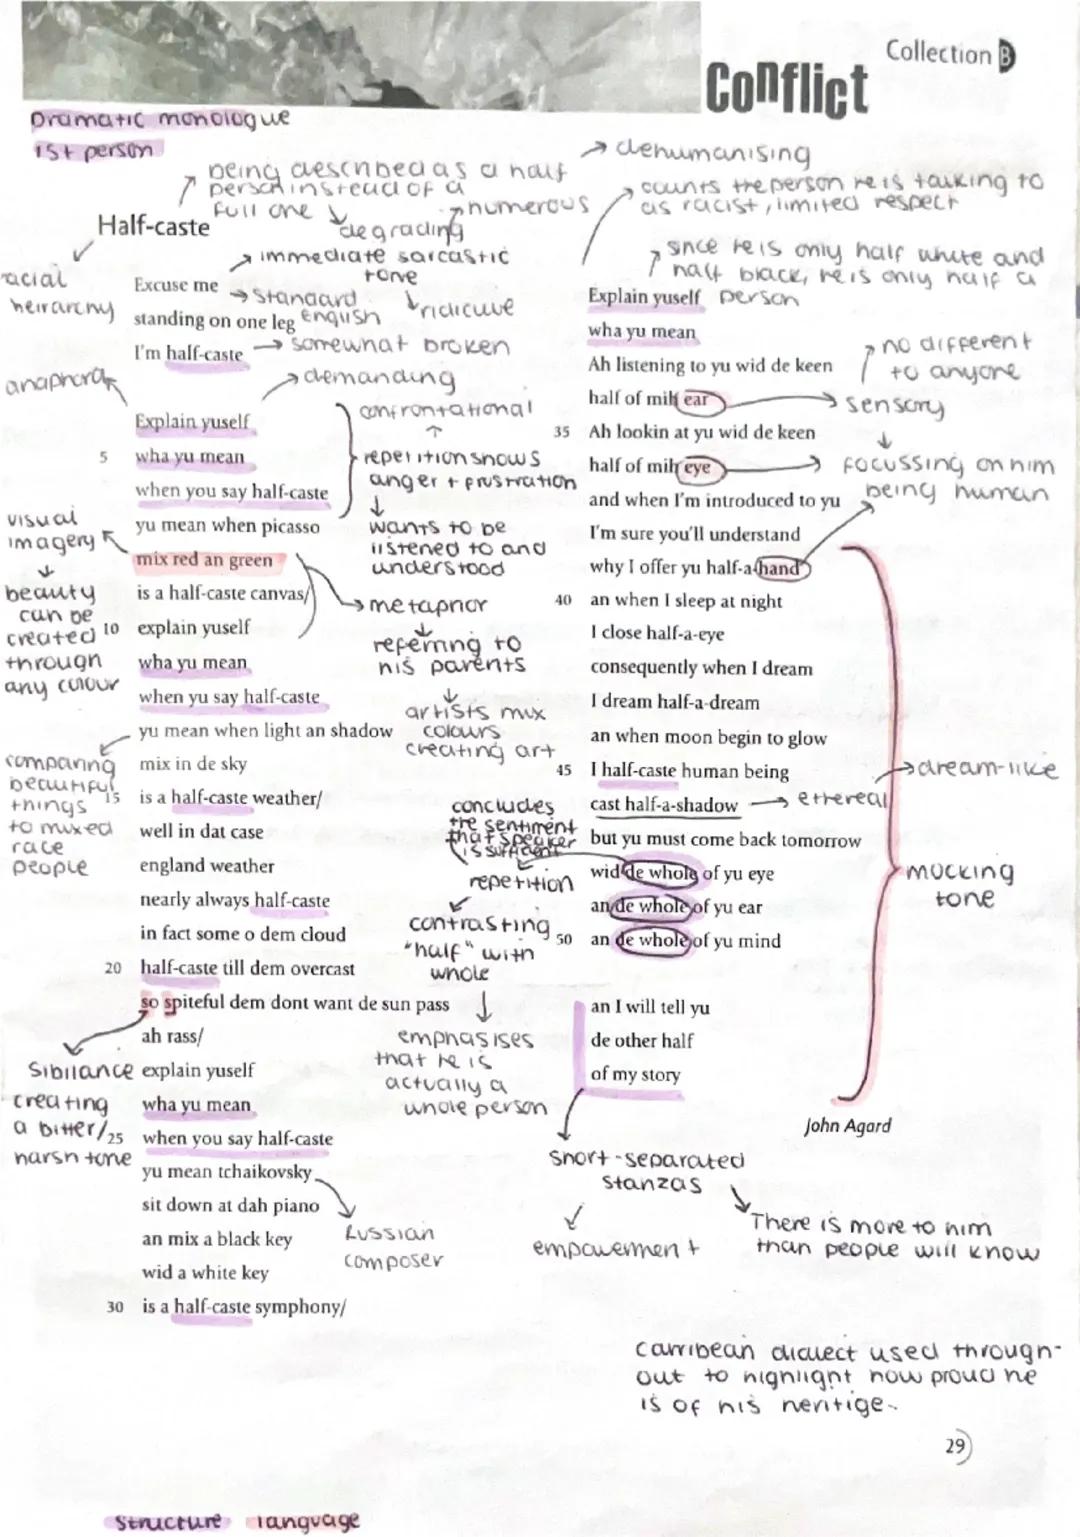 Collection B
Conflict
Dramatic monologue
1st person
being described as a half
person instead of a
full one
degrading
numerous
dehumanising
counts the person he is talking to
as racist, limited respect
Half-caste
racial
heirarchy
immediate sarcastic
tone
ridicule
Standard
english
since he is only half white and
half black, he is only half a
person
Excuse me
standing on one leg
I'm half-caste
somewhat broken
anaphora
demanding
confrontational
repetition shows
anger + frustration
wants to be
listened to and
understood
Explain yuself
5 wha yu mean
when you say half-caste
yu mean when picasso
mix red an green
is a half-caste canvas/
10 explain yuself
wha yu mean
when yu say half-caste
yu mean when light an shadow
mix in de sky
15 is a half-caste weather/
well in dat case
england weather
nearly always half-caste
in fact some o dem cloud
20 half-caste till dem overcast
so spiteful dem dont want de sun pass
ah rass/
explain yuself
wha yu mean
25 when you say half-caste
yu mean tchaikovsky
sit down at dah piano
an mix a black key
wid a white key
30 is a half-caste symphony/
visual
imagery
beauty
can be
created
through
any colour
metaphor
referring to
his parents
artists mix
colours
creating art
comparing
beautiful
things
to mixed
race
people
Sibilance
creating
a bitter/
harsh tone
Russian
composer
Explain yuself
wha yu mean
Ah listening to yu wid de keen
half of mih ear
35 Ah lookin at yu wid de keen
half of mih eye
and when I'm introduced to yu
I'm sure you'll understand
why I offer yu half-a-hand
40 an when I sleep at night
I close half-a-eye
consequently when I dream
I dream half-a-dream
an when moon begin to glow
45 I half-caste human being
cast half-a-shadow
but yu must come back tomorrow
wid de whole of yu eye
an de whole of yu ear
50 an de whole of yu mind
an I will tell yu
de other half
of my story
John Agard
no different
to anyone
sensory
focussing on him
being human
dream-like
ethereal
mocking
tone
concludes
the sentiment
that speaker
is sufficient
repetition
contrasting
"half" with
whole
emphasises
that he is
actually a
whole person
short-separated
stanzas
empowerment
There is more to him
than people will know
carribean dialect used through-
out to highlight how proud he
is of his heritige.
29
structure language